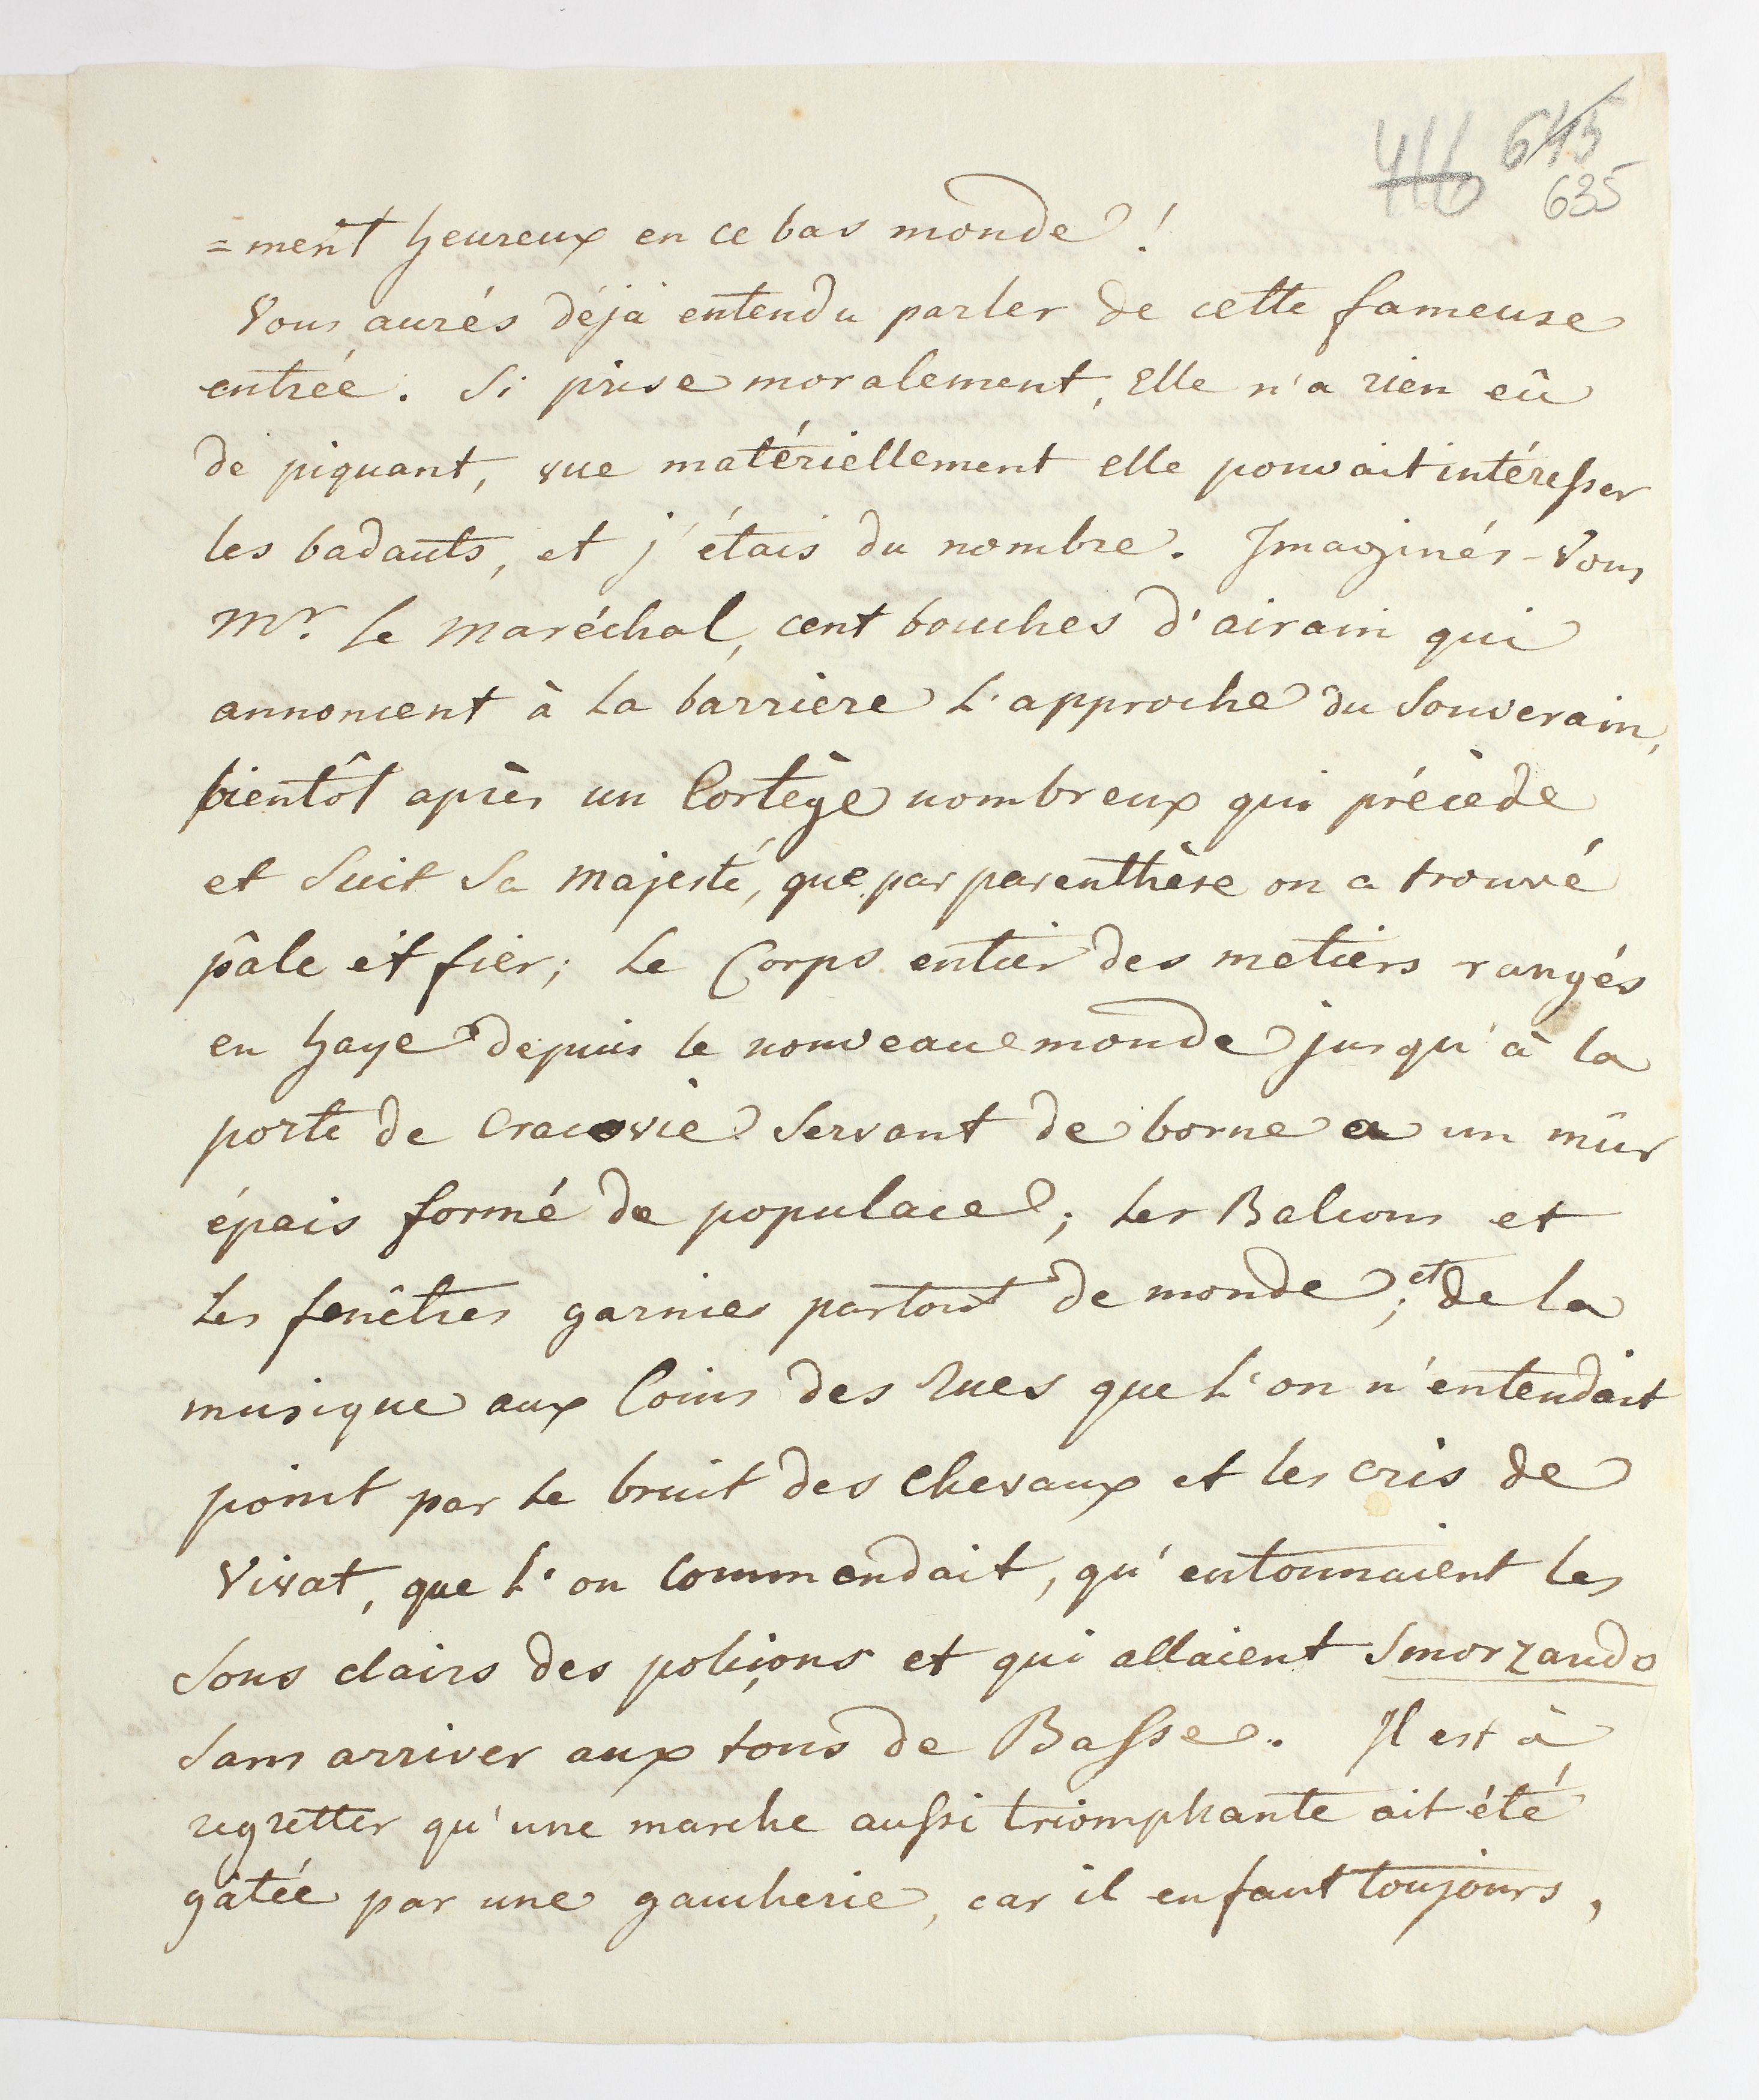 416 645
635
=ment heureux en ce bas monde!
Vous aurés déja entendu parler de cette fameuse
entrée. Si prise moralement, Elle n'a rien eû
de piquant, vue matériellement elle pouvait intéresser
les badauts, et j'étais du nombre. Imaginés-Vous
Mr. le Maréchal, cent bouches d'airain qui
annoncent à la barrière l'approche du Souverain,
bientôt après un Cortège nombreux qui précède
et Suit Sa Majesté, que par parenthèse on a trouvé
pâle et fier; le Corps entier des metiers rangés
en haye depuis le nouveau monde jusqu'à la
porte de Cracovie Servant de borne a un mûr
épais formé de populace; les Balcons et
les fenêtres garnies partout de monde; et de la
musique aux Coins des Rues que l'on n'entendait
point par le bruit des Chevaux et les cris de
Vivat, que l'on commendait, qu'entonnaient les
Sons clairs des poliçons et qui allaient Smorzando
Sans arriver aux tons de Basse. Il est à
regretter qu'une marche aussi triomphante ait été
gâtée par une gaucherie, car il en faut toujours,